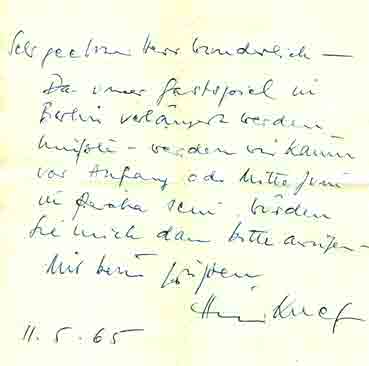 Sehr geehrter Herr Wunderlich —
Da unser Gastspiel in
Berlin verlängert werden
mußte – werden wir kaum
vor Anfang oder Mitte Juni
in sein, würden
Sie mich dann bitte anrufen –
Mit besten Grüßen,
Knef
11. 5. 65